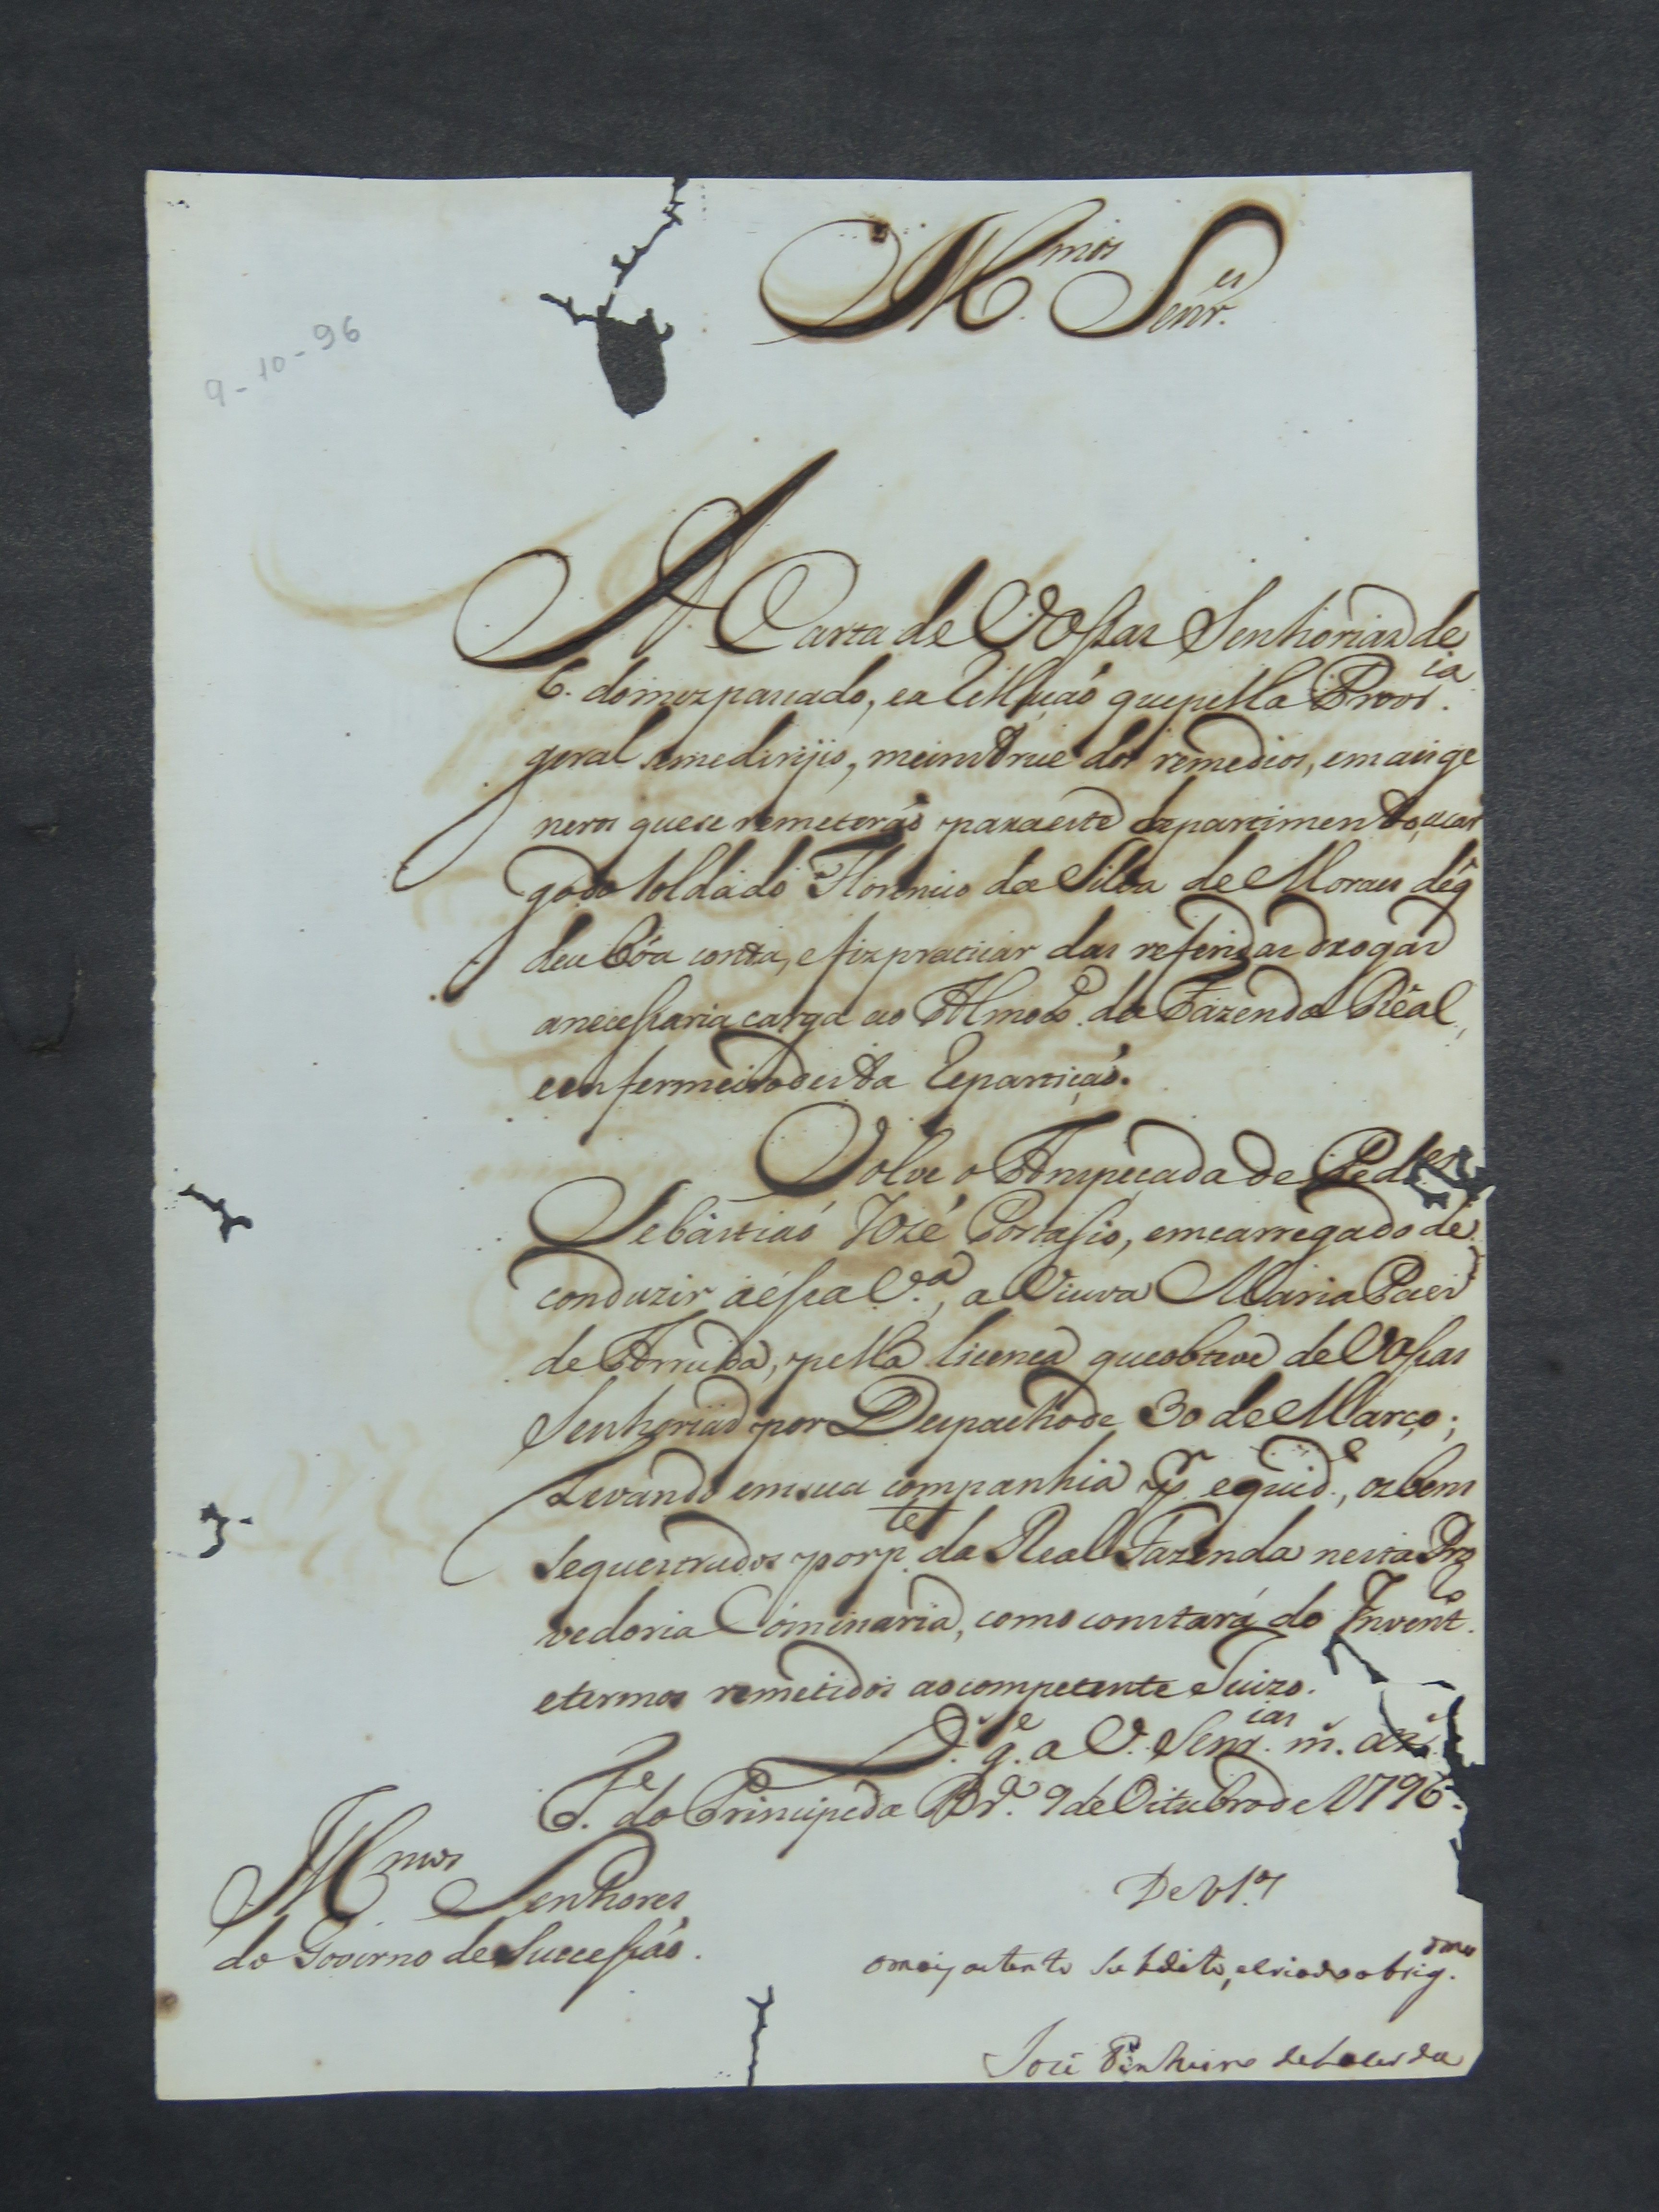 Ill.mos Senr.es
9-10-96
A Carta de Vossas Senhorias de
6. do mez passado, ea Rellação que pella Provr.ia
geral se me dirijio, me instruie dos remedios, e mais ge
neros que se remeterão para este departimento, a car
go do Soldado Florencio da Silva de Moraes de q
deu bôa conta, e fiz praticar das referidas drogas
a necessaria carga ao Almox.e da Fazenda Real,
e enfermeiro desta Repartição.
Volve o Ampeçada de Ped.es
Sebastião José Portasio, emcarregado de
conduzir á éssa V.a, a Viuva Maria Paes
de Arruda, pella licença que obteve de Vossas
Senhorias por Despacho de 30 de Março;
Levando em sua companhia p.r equid.e, os bens
sequestrados por p.te da Real Fazenda nesta Pro
vedoria Cominaria, como constará do Invent.o
e termos remetidos ao competente Juizo.
D.s g.e a V. Senr.ias m.s an.s
F.e do Principe da Br.a 9 de Oitubro de 1796.
Ill.mos Senhores
do Governo de Successão.
De V S.as
o mais atento Subdito, e criado obrig.dmo
José Pinheiro de Lacerda